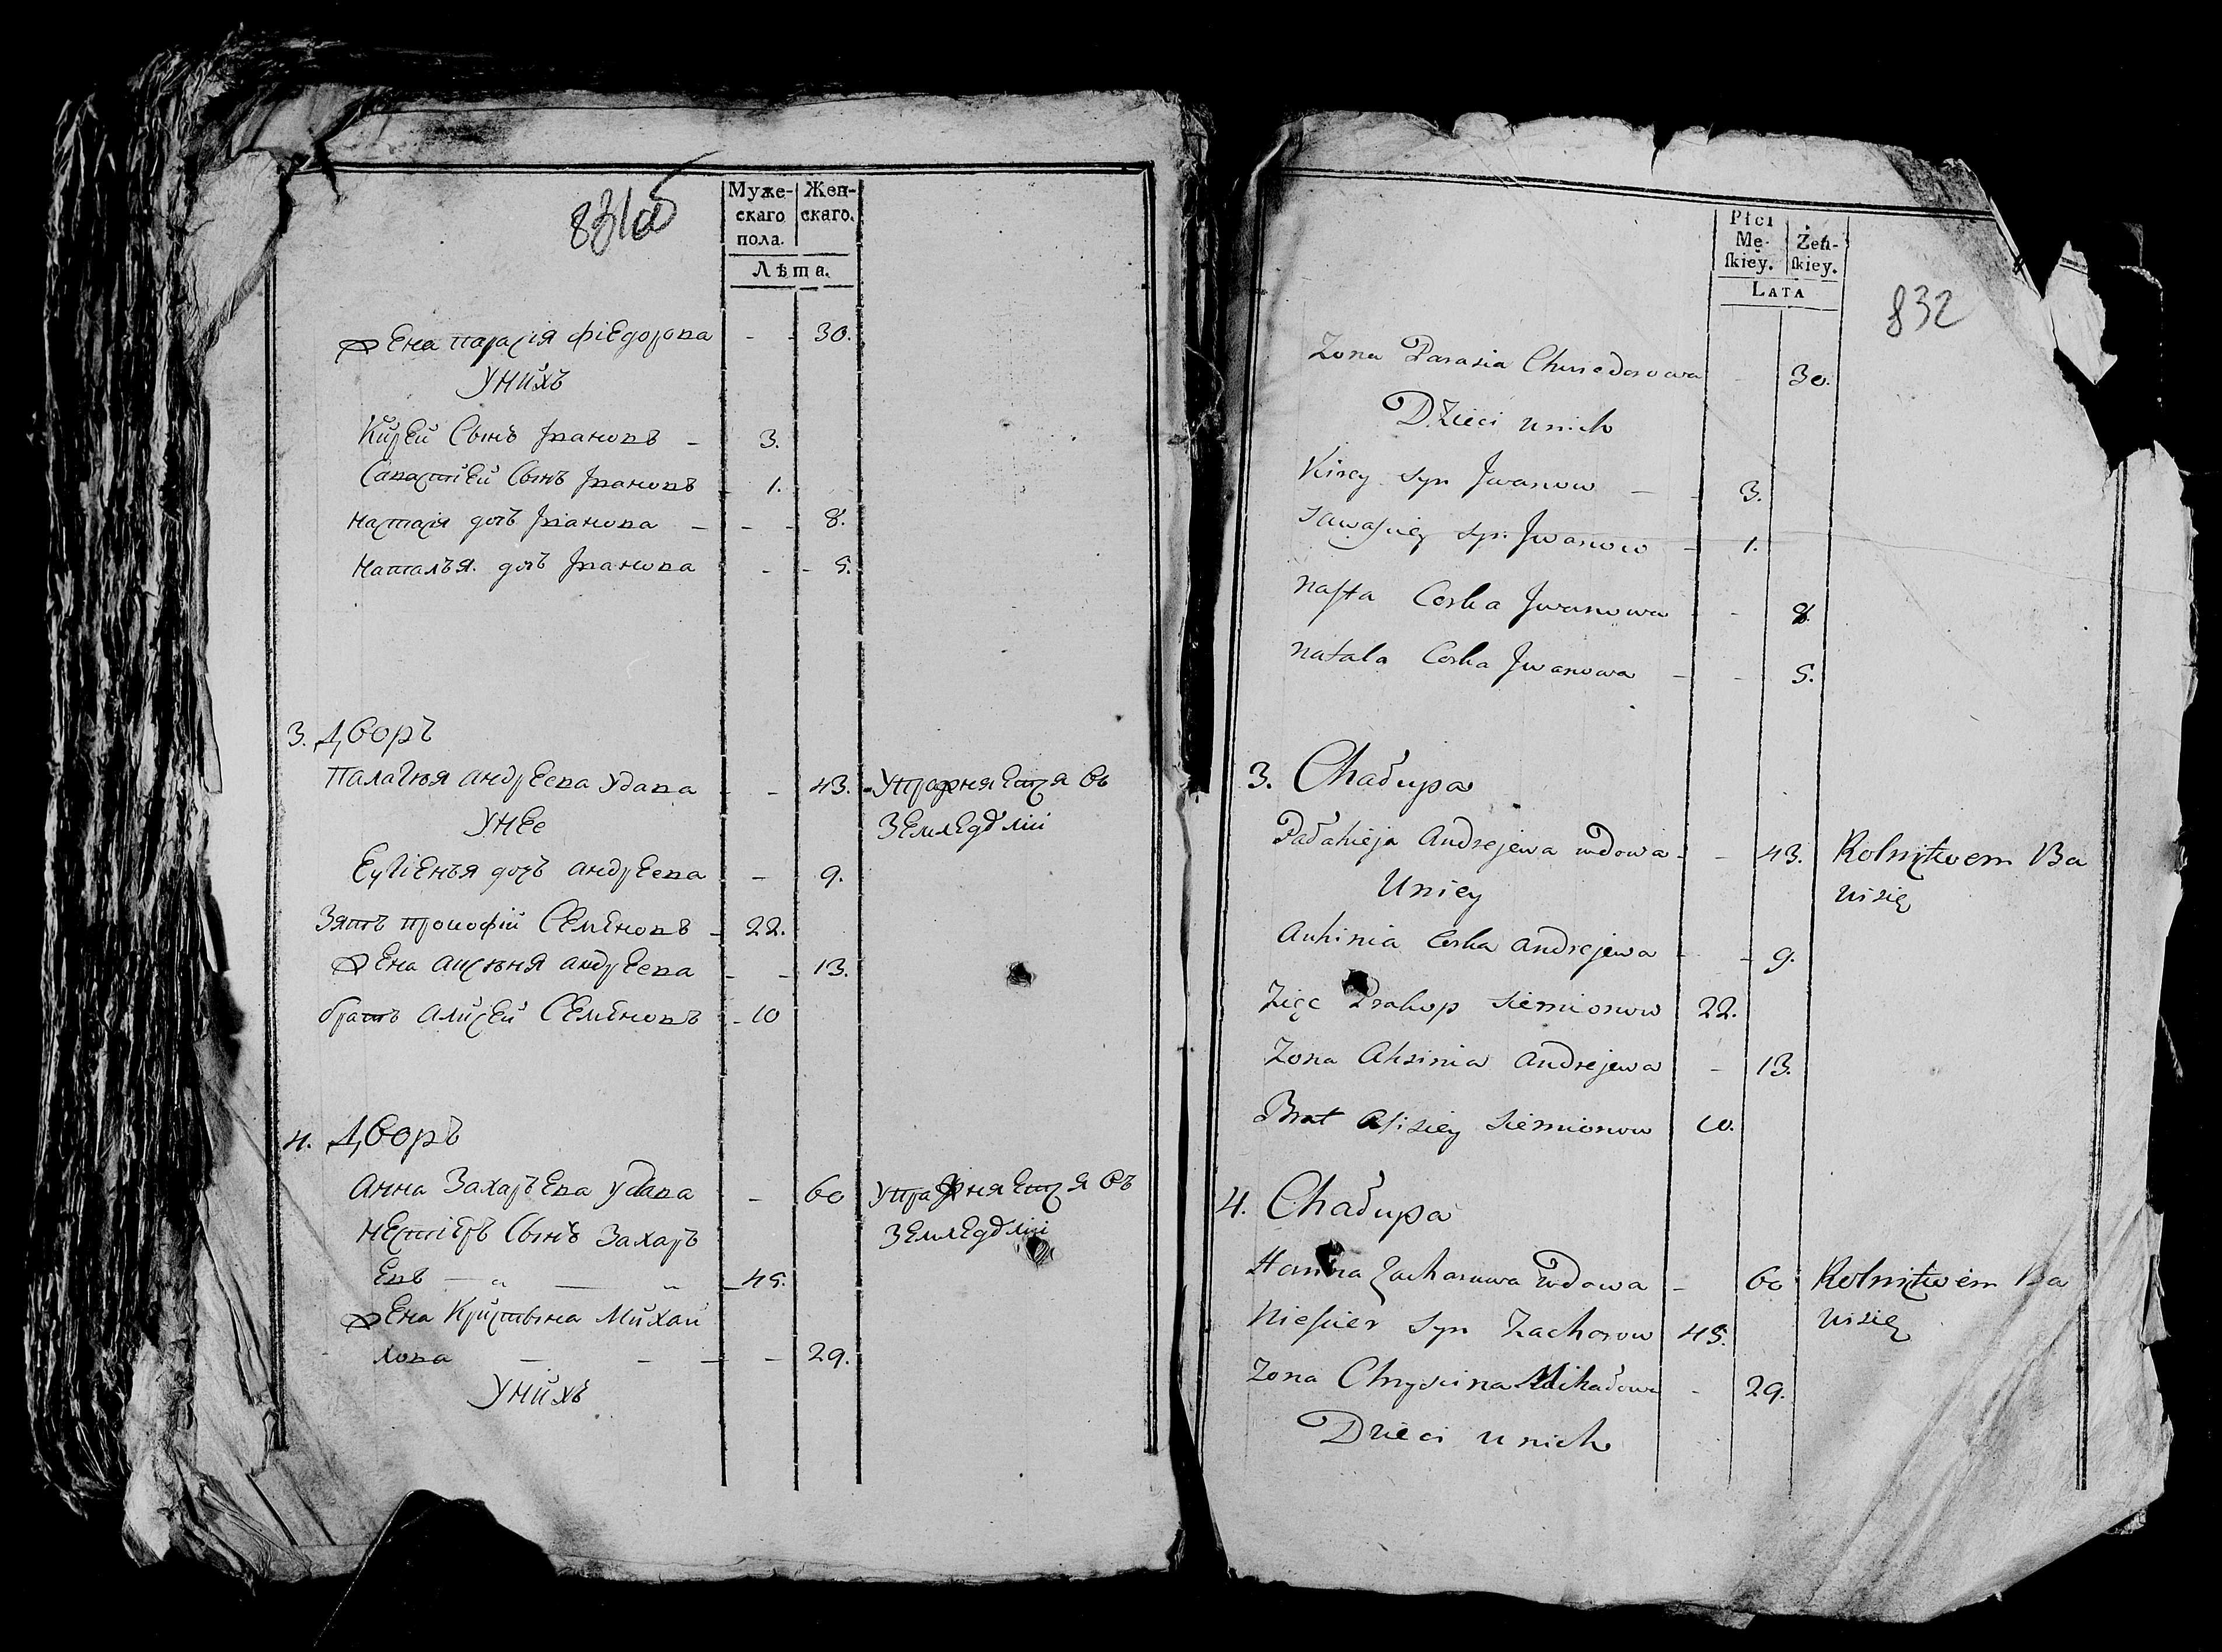 831об
Муже-
скаго
пола.
Жен-
скаго.
Лѣта.
жена парасія фіедорова - - 30.
унйхъ
Кирей Сынъ Івановъ - 3.
Савастіей Сынъ Івановъ - 1.
настасія дочъ Іванова - - - 8.
наталъя. дочъ Іванова - - 5.
3. Дворъ
Палагѣя андреева удава - - 43. упражняется въ
унее земледѣліи
Еугіенъя дочъ андреева - 9.
Зять прокофій Семеновъ - 22.
жена аксѣня андреева - - 13.
братъ алйсей Семеновъ - 10
4. Дворъ
анна Захаръева удава - 60 упражняется въ
нестіеръ Сынъ Захаръ земледѣліи
евъ — „ — „ - 45.
жена Крйстына Мйхай
лова - - - - 29.
унйхъ
832
Płci
Mę-
ſkiey.
Żeń-
ſkiey.
LATA
Zona Parasia Chwiedorowa - 30.
Dzieci unich
Kirey syn Jwanow - - 3.
Sawaſciey syn Jwanow - 1.
naſta Corka Jwanowa - - 8.
natala Corka Jwanowa - - 5.
3. Chałupa
Pałahieja Andrejewa wdowa - - 43. Rolnitwem Ba
Uniey wi się
Auhinia Corka andrejewa - - 9.
Zięc Prakop Siemionow 22.
Zona Aksinia andrejewa - 13.
Brat Alisiey Siemionow 10.
4. Chałupa
Hanna Zacharowa wdowa - 60 Rolnitwem Ba
Nieſcier syn Zacharow 45. wi się
Zona Chryscina Mihałowa - 29.
Dzieci unich